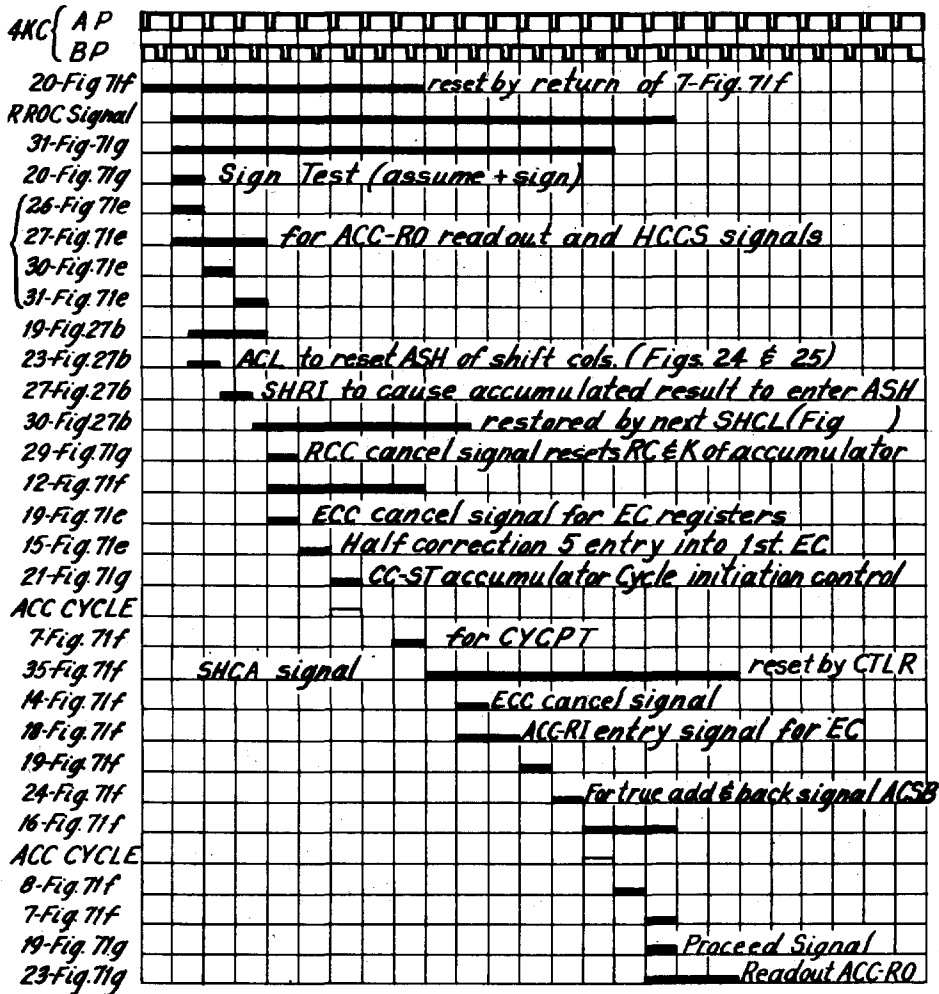 4KC { AP
BP
20-Fig 71f reset by return of 7-Fig. 71f
RROC Signal
31-Fig-71g
20-Fig. 71g Sign Test (assume + sign)
26-Fig 71e
27-Fig. 71e for ACC-RO readout and HCCS signals
30-Fig. 71e
31-Fig. 71e
19-Fig. 27b
23-Fig. 27b ACL to reset ASH of shift cols. (Figs. 24 & 25)
27-Fig. 27b SHRI to cause accumulated result to enter ASH
30-Fig. 27b restored by next SHCL (Fig )
29-Fig. 71g RCC cancel signal resets RC & K of accumulator
12-Fig. 71f
19-Fig. 71e ECC cancel signal for EC registers
15-Fig. 71e Half correction 5 entry into 1st. EC
21-Fig. 71g CC-ST accumulator Cycle initiation control
ACC CYCLE
7-Fig. 71f for CYCPT
35-Fig. 71f SHCA signal reset by CTLR
14-Fig. 71f ECC cancel signal
18-Fig. 71f ACC-RI entry signal for EC
19-Fig. 71f
24-Fig. 71f For true add & back signal ACSB
16-Fig. 71f
ACC CYCLE
8-Fig. 71f
7-Fig. 71f
19-Fig. 71g Proceed Signal
23-Fig. 71g Readout ACC-RO